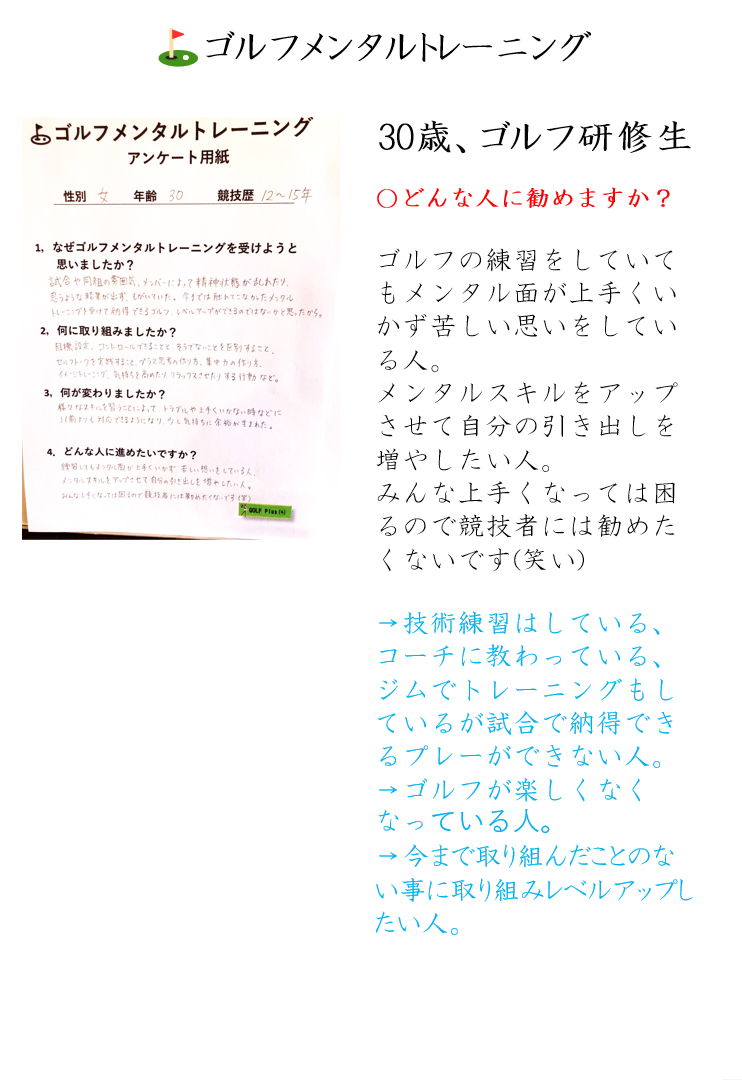 ゴルフメンタルトレーニング
ゴルフメンタルトレーニング
アンケート用紙
性別 女 年齢 30 競技歴 12〜15年
1，なぜゴルフメンタルトレーニングを受けようと
思いましたか？
試合や同組の雰囲気、メンバーによって精神状態が乱れたり、
思うような結果が出ず、もがいていた。今までは触れてこなかったメンタル
トレーニングを受けて納得できるゴルフ、レベルアップができるのではないかと思ったから。
2，何に取り組みましたか？
目標設定、コントロールできることと そうでないことを区別すること、
セルフトークを実践すること、プラス思考の作り方、集中力の作り方、
イメージトレーニング、気持ちを高めたりリラックスさせたりする行動 など。
3，何が変わりましたか？
様々なスキルを習うことによって、トラブルや上手くいかない時などに
以前よりも対応できるようになり、少し気持ちに余裕が生まれた。
4．どんな人に進めたいですか？
練習してもメンタル面が上手くいかず 苦しい想いをしている人、
メンタルスキルをアップさせて自分の引き出しを増やしたい人。
みんな上手くなっては困るので競技者には勧めたくないです(笑)
GOLF Plus(+)
30歳、ゴルフ研修生
〇どんな人に勧めますか？
ゴルフの練習をしていて
もメンタル面が上手くい
かず苦しい思いをしてい
る人。
メンタルスキルをアップ
させて自分の引き出しを
増やしたい人。
みんな上手くなっては困
るので競技者には勧めた
くないです(笑い)
→技術練習はしている、
コーチに教わっている、
ジムでトレーニングもし
ているが試合で納得でき
るプレーができない人。
→ゴルフが楽しくなく
なっている人。
→今まで取り組んだことのな
い事に取り組みレベルアップし
たい人。